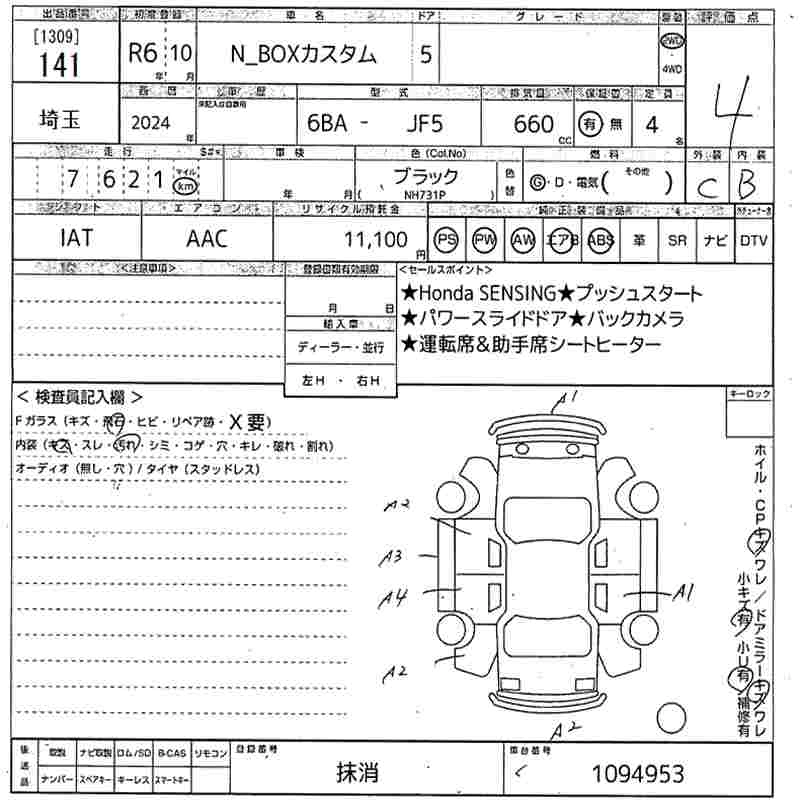 出品番号 初度登録 車名 ドア グレード 駆動 評価点
[1309]
141 R6年 10月 N_BOXカスタム 5 2WD・4WD 4
西暦 車歴 型式 排気量 保証書 定員
埼玉 2024年 6BA - JF5 660cc 有 無 4名
走行 車検 色(Col.No) 色替 燃料 外装 内装
7 6 2 1 マイル km 年 月 ブラック ( NH731P ) G・D・電気( その他 ) C B
エアコン リサイクル預託金 純正装備品
IAT AAC 11,100円 PS PW AW エアB ABS 革 SR ナビ DTV
<注意事項> 登録書類有効期限 <セールスポイント>
月 日
★Honda SENSING★プッシュスタート
輸入車
★パワースライドドア★バックカメラ
ディーラー・並行
★運転席&助手席シートヒーター
左H ・ 右H
キーロック
< 検査員記入欄 >
Fガラス (キズ・飛石・ヒビ・リペア跡・X要)
内装 (キズ・スレ・汚れ・シミ・コゲ・穴・キレ・破れ・割れ)
オーディオ (無し・穴) / タイヤ (スタッドレス)
A1
A2
A3
A4
A1
A2
A2
ホイル・CPキズワレ / ドアミラーキズワレ
小キズ有 / 小U有 / 補修有
後送品 取説 ナビ取説 ロム/SD B-CAS リモコン 登録番号 車台番号
ナンバー スペアキー キーレス スマートキー 抹消 1094953